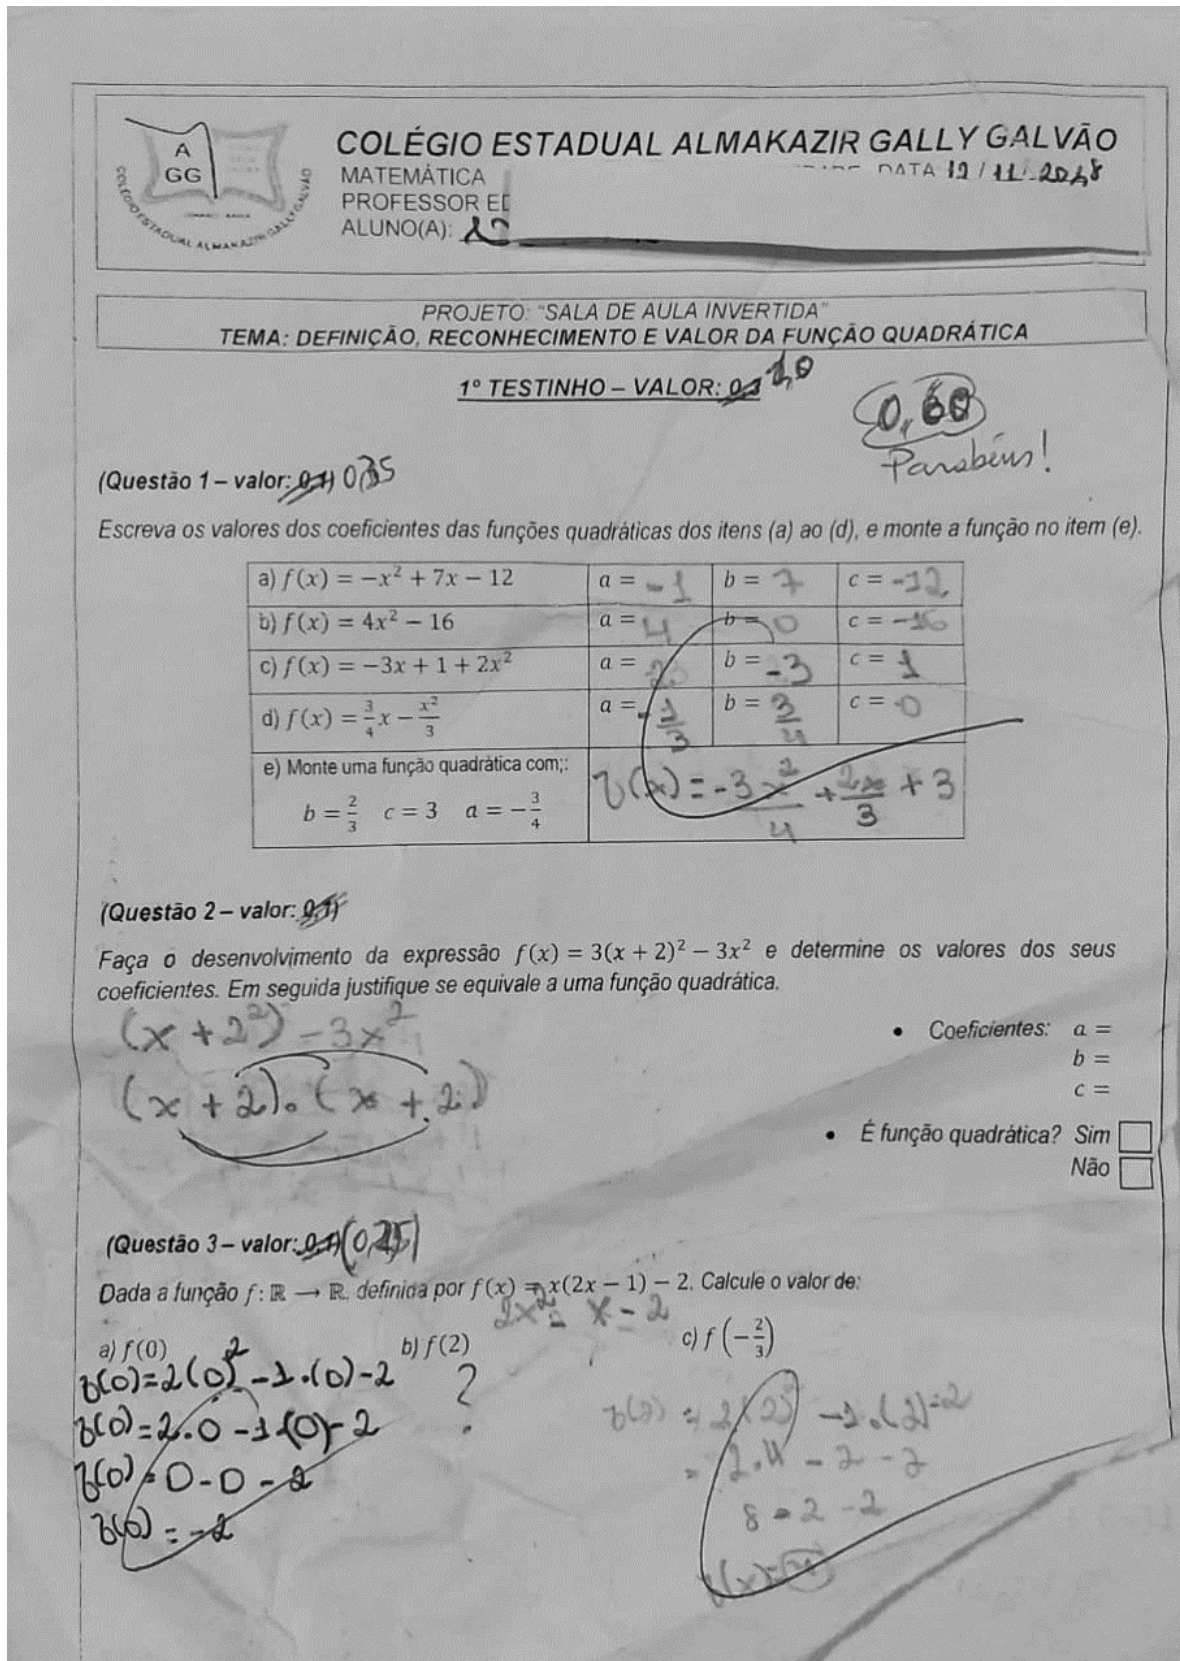 A
GG
COLÉGIO ESTADUAL ALMAKAZIR GALLY GALVÃO
COLÉGIO ESTADUAL ALMAKAZIR GALLY GALVÃO
MATEMÁTICA
DATA 12/11/2018
PROFESSOR ED
ALUNO(A):
PROJETO: "SALA DE AULA INVERTIDA"
TEMA: DEFINIÇÃO, RECONHECIMENTO E VALOR DA FUNÇÃO QUADRÁTICA
1º TESTINHO – VALOR: 0,3 1,0
0,60
Parabéns!
(Questão 1 – valor: 0,1) 0,35
Escreva os valores dos coeficientes das funções quadráticas dos itens (a) ao (d), e monte a função no item (e).
a) f(x) = −x² + 7x − 12 a = -1 b = 7 c = -12
b) f(x) = 4x² − 16 a = 4 b = 0 c = -16
c) f(x) = −3x + 1 + 2x² a = 2 b = -3 c = 1
d) f(x) = 3/4 x − x²/3 a = -1/3 b = 3/4 c = 0
e) Monte uma função quadrática com;:
b = 2/3 c = 3 a = −3/4
f(x) = -3x²/4 + 2x/3 + 3
(Questão 2 – valor: 0,1)
Faça o desenvolvimento da expressão f(x) = 3(x + 2)² − 3x² e determine os valores dos seus
coeficientes. Em seguida justifique se equivale a uma função quadrática.
(x + 2²) - 3x²
(x + 2).(x + 2)
• Coeficientes: a =
b =
c =
• É função quadrática? Sim
Não
(Questão 3 – valor: 0,1) (0,25)
Dada a função f: ℝ → ℝ, definida por f(x) = x(2x − 1) − 2. Calcule o valor de:
2x² - x - 2
a) f(0)
f(0)=2(0)²-1.(0)-2
f(0)=2.0-1(0)-2
f(0)=0-0-2
f(0)=-2
b) f(2)
?
c) f(−2/3)
f(2) = 2(2)² -1.(2)-2
= 2.4 - 2 - 2
8 - 2 - 2
f(x)=4